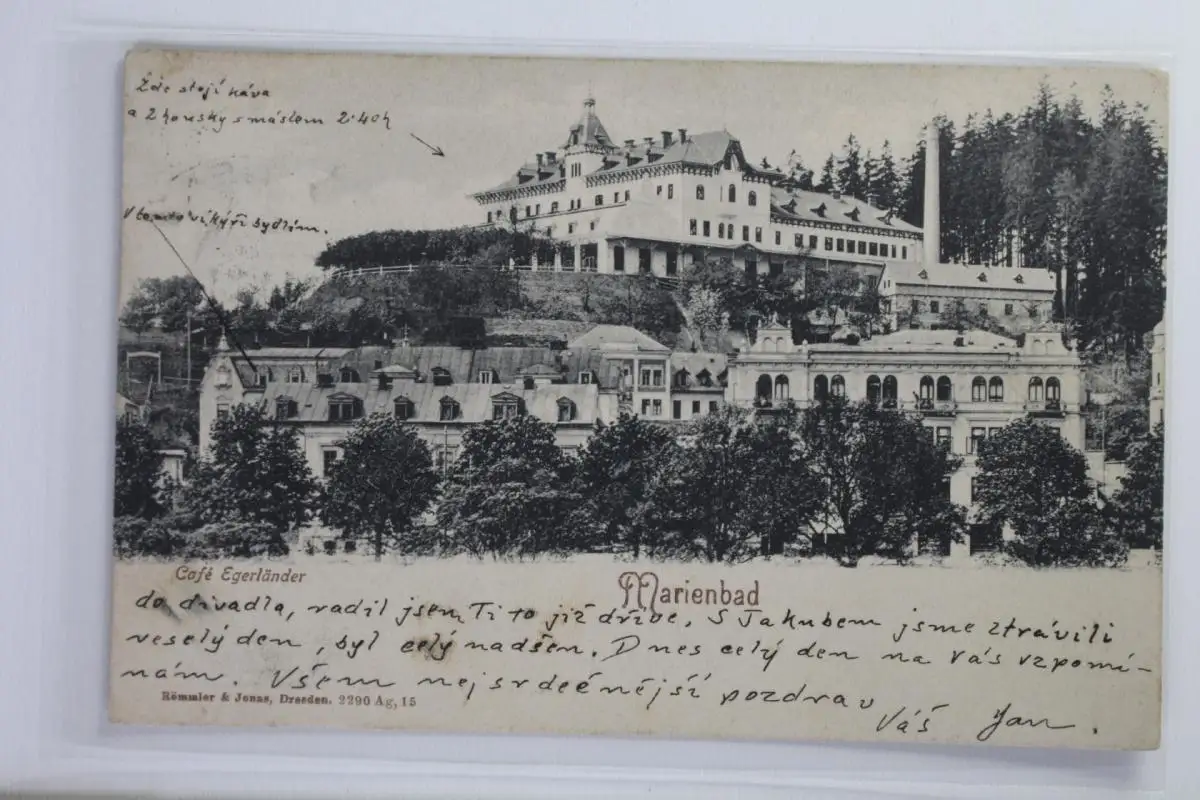 Zde stojí káva
a 2 housky s máslem 2·40h
V tomto vikýři bydlím.
Café Egerländer
Marienbad
do divadla, radil jsem Ti to již dříve. S Jakubem jsme ztrávili
veselý den, byl celý nadšen. Dnes celý den na Vás vzpomí-
nám. Všem nejsrdečnější pozdrav
Römmler & Jonas, Dresden. 2290 Ag, 15
Váš Jan.